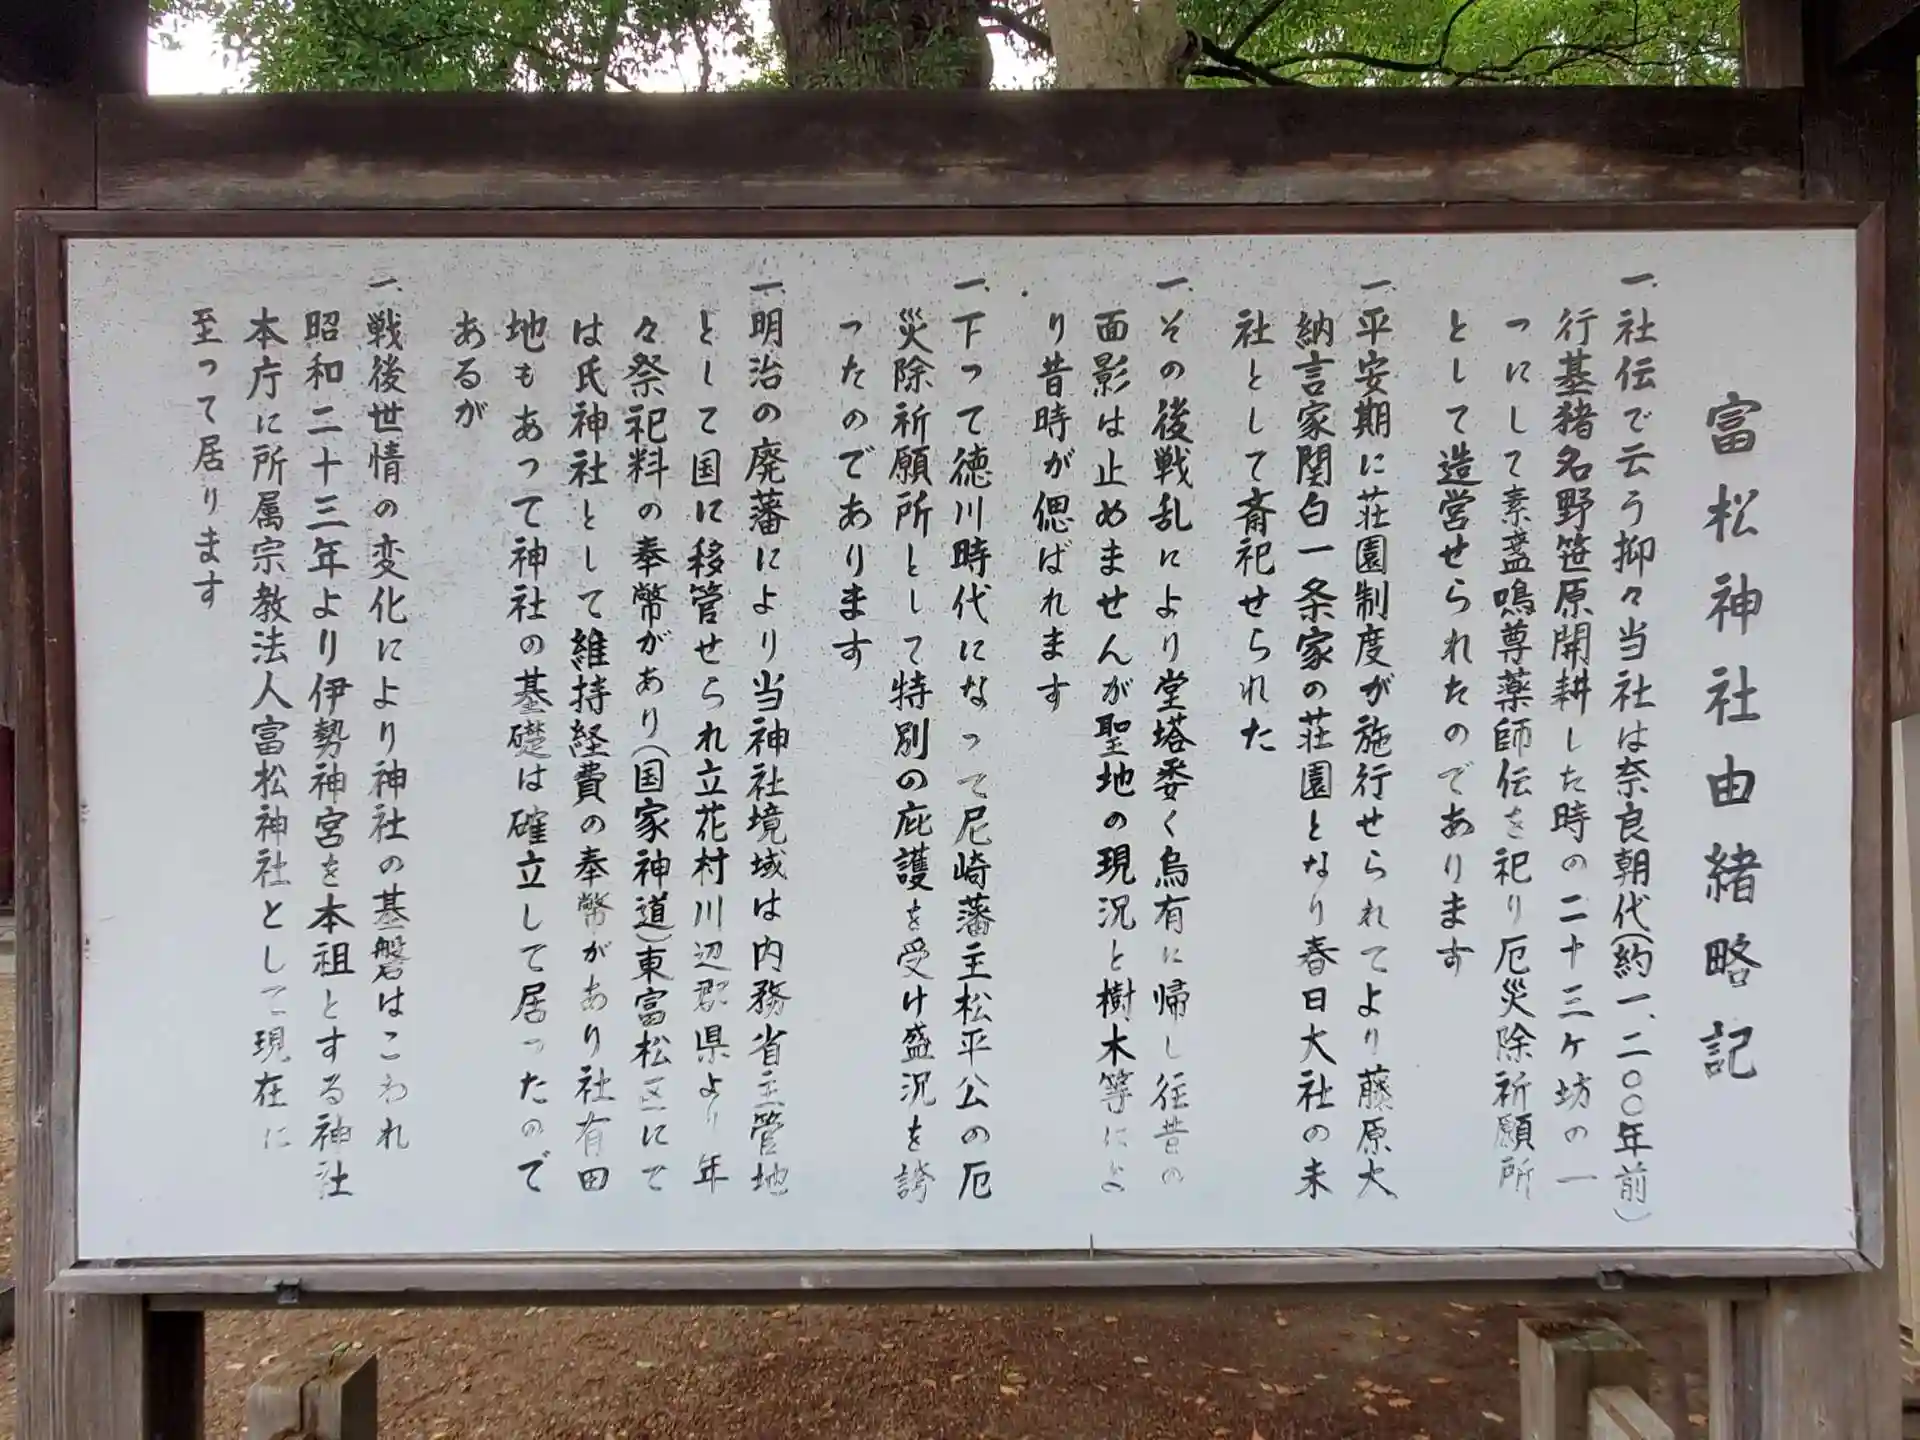 富松神社由緒略記
一、社伝で云う抑々当社は奈良朝代(約一、二〇〇年前)
行基猪名野笹原開耕した時の二十三ヶ坊の一
つにして素盞鳴尊薬師伝を祀り厄災除祈願所
として造営せられたのであります
一、平安期に荘園制度が施行せられてより藤原大
納言家関白一条家の荘園となり春日大社の末
社として斎祀せられた
一、その後戦乱により堂塔委く烏有に帰し往昔の
面影は止めませんが聖地の現況と樹木等によ
り昔時が偲ばれます
一、下って徳川時代になって尼崎藩主松平公の厄
災除祈願所として特別の庇護を受け盛況を誇
ったのであります
一、明治の廃藩により当神社境域は内務省主管地
として国に移管せられ立花村川辺郡県より年
々祭祀料の奉幣があり(国家神道)東富松区にて
は氏神社として維持経費の奉幣があり社有田
地もあって神社の基礎は確立して居ったので
あるが
一、戦後世情の変化により神社の基磐はこわれ
昭和二十三年より伊勢神宮を本祖とする神社
本庁に所属宗教法人富松神社として現在に
至って居ります